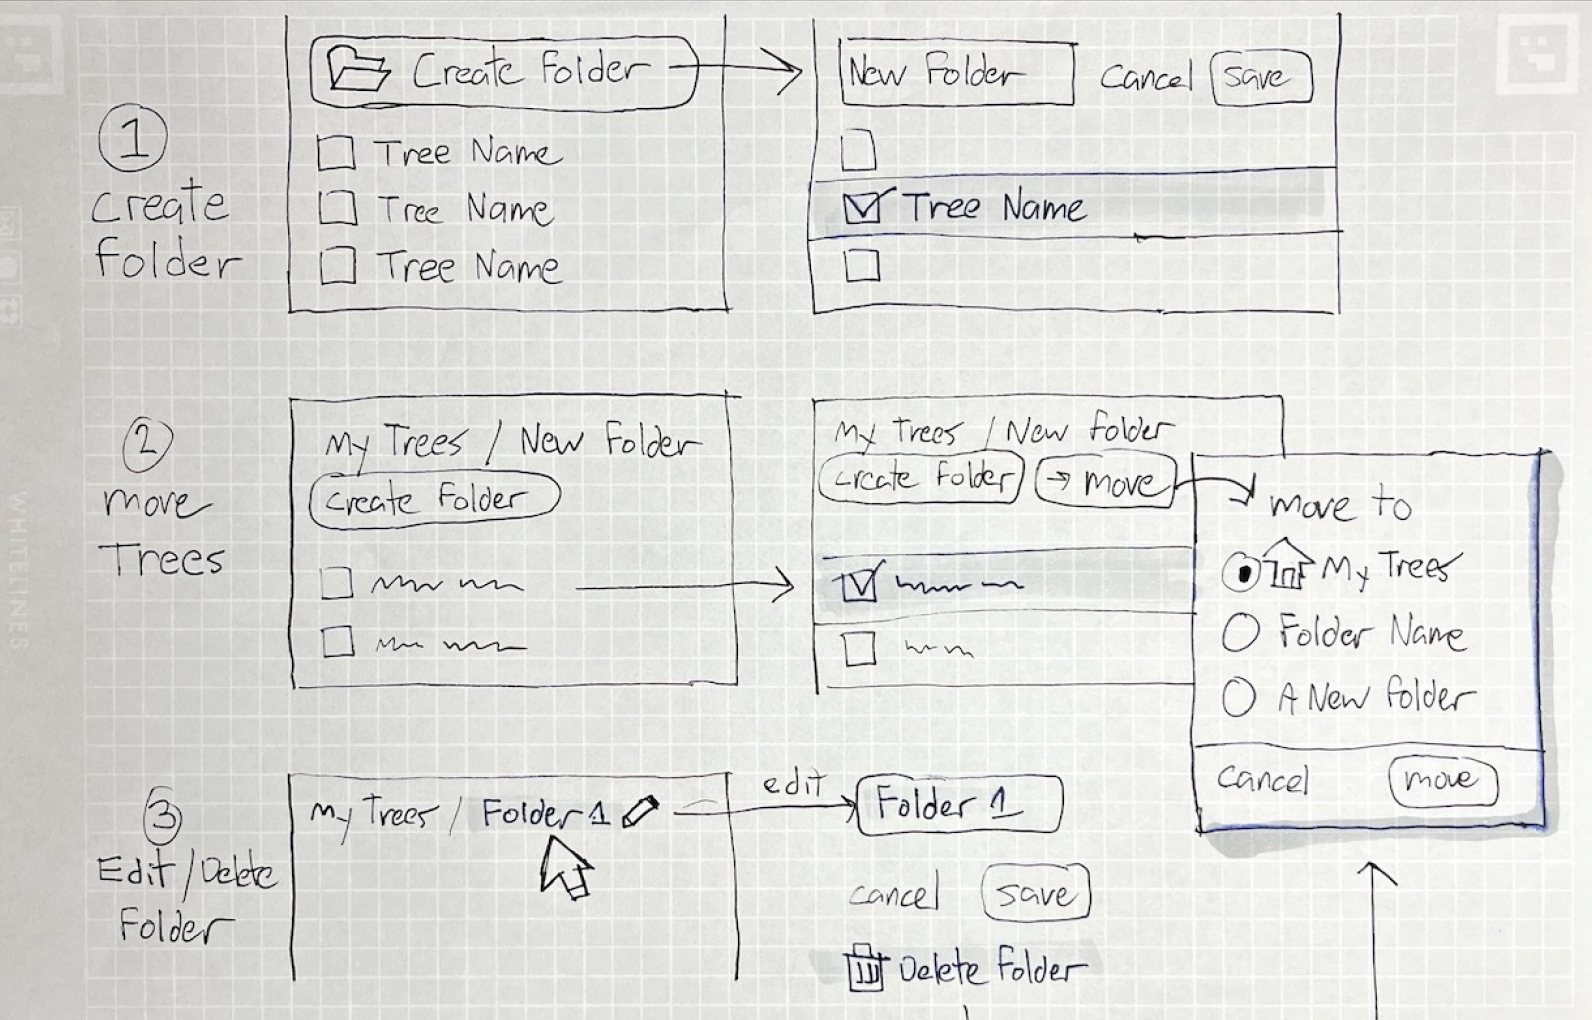 1
Create
Folder
Create Folder
Tree Name
Tree Name
Tree Name
New Folder
Cancel
Save
Tree Name
2
Move
Trees
My Trees / New Folder
Create Folder
My Trees / New Folder
Create Folder
→ Move
Move to
My Trees
Folder Name
A New Folder
Cancel
Move
3
Edit/Delete
Folder
My Trees / Folder 1
edit
Folder 1
Cancel
Save
Delete Folder
WHITELINES